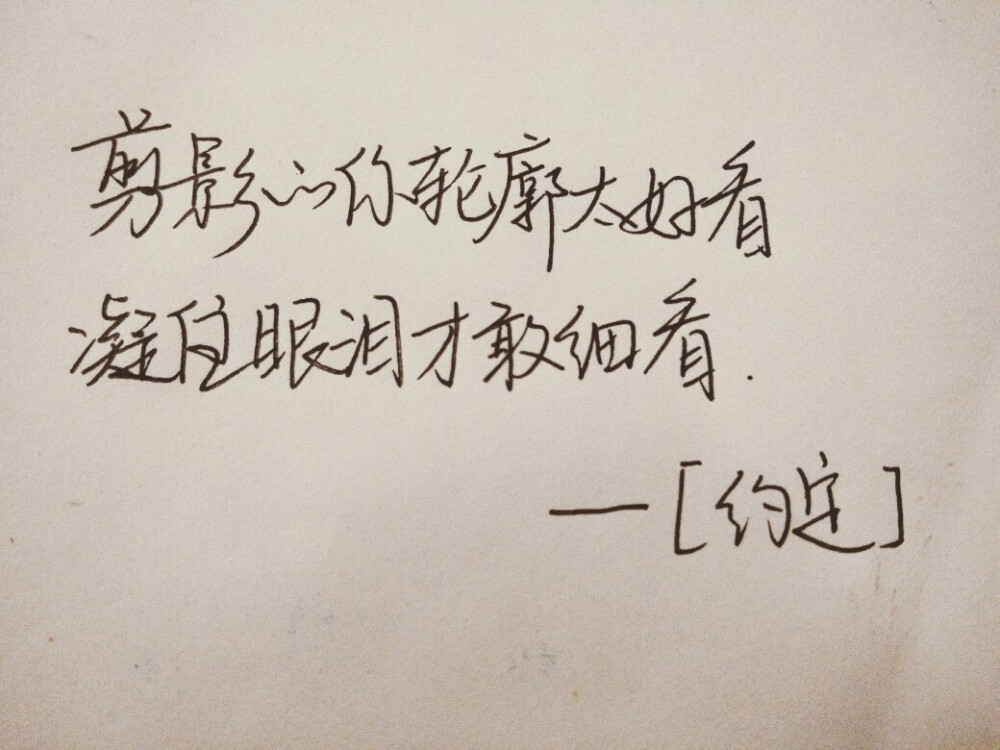 剪影的你轮廓太好看
凝住眼泪才敢细看.
—[约定]